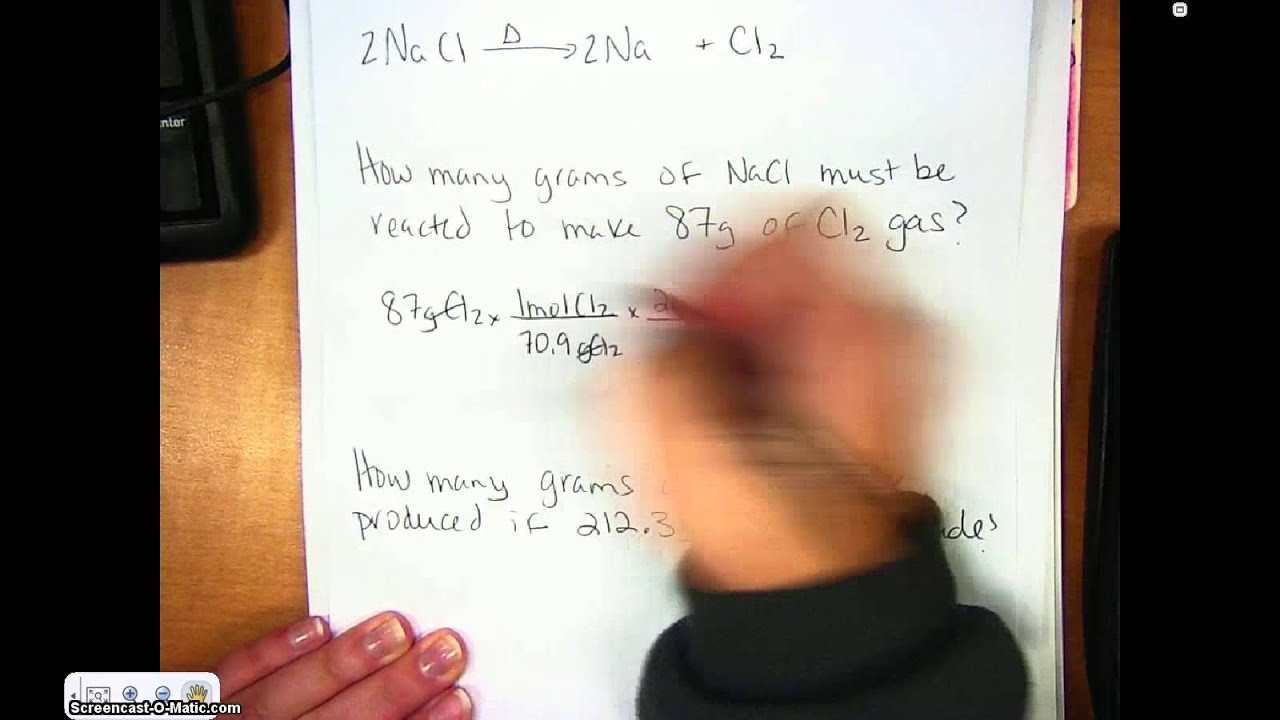 2NaCl Δ→ 2Na + Cl₂
How many grams of NaCl must be
reacted to make 87g of Cl₂ gas?
87gCl₂ × 1molCl₂ / 70.9gCl₂ ×
How many grams
produced if 212.3
Screencast-O-Matic.com